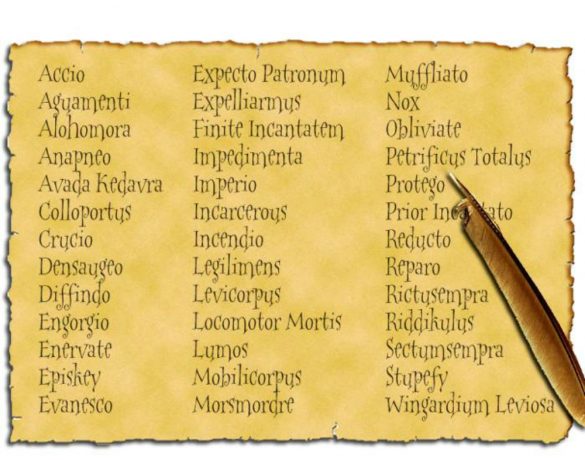 Accio
Aguamenti
Alohomora
Anapneo
Avada Kedavra
Colloportus
Crucio
Densaugeo
Diffindo
Engorgio
Enervate
Episkey
Evanesco
Expecto Patronum
Expelliarmus
Finite Incantatem
Impedimenta
Imperio
Incarcerous
Incendio
Legilimens
Levicorpus
Locomotor Mortis
Lumos
Mobilicorpus
Morsmordre
Muffliato
Nox
Obliviate
Petrificus Totalus
Protego
Prior
Reducto
Reparo
Rictusempra
Riddikulus
Sectumsempra
Stupefy
Wingardium Leviosa